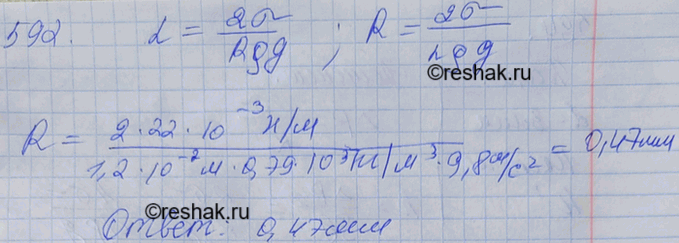 592. L = 2σ / Rρg ; R = 2σ / Lρg
©reshak.ru
R = 2·22·10⁻³ Н/м / 1,2·10⁻²м·0,79·10³ кг/м³·9,8 м/с² = 0,47мм
©reshak.ru
Ответ: 0,47мм